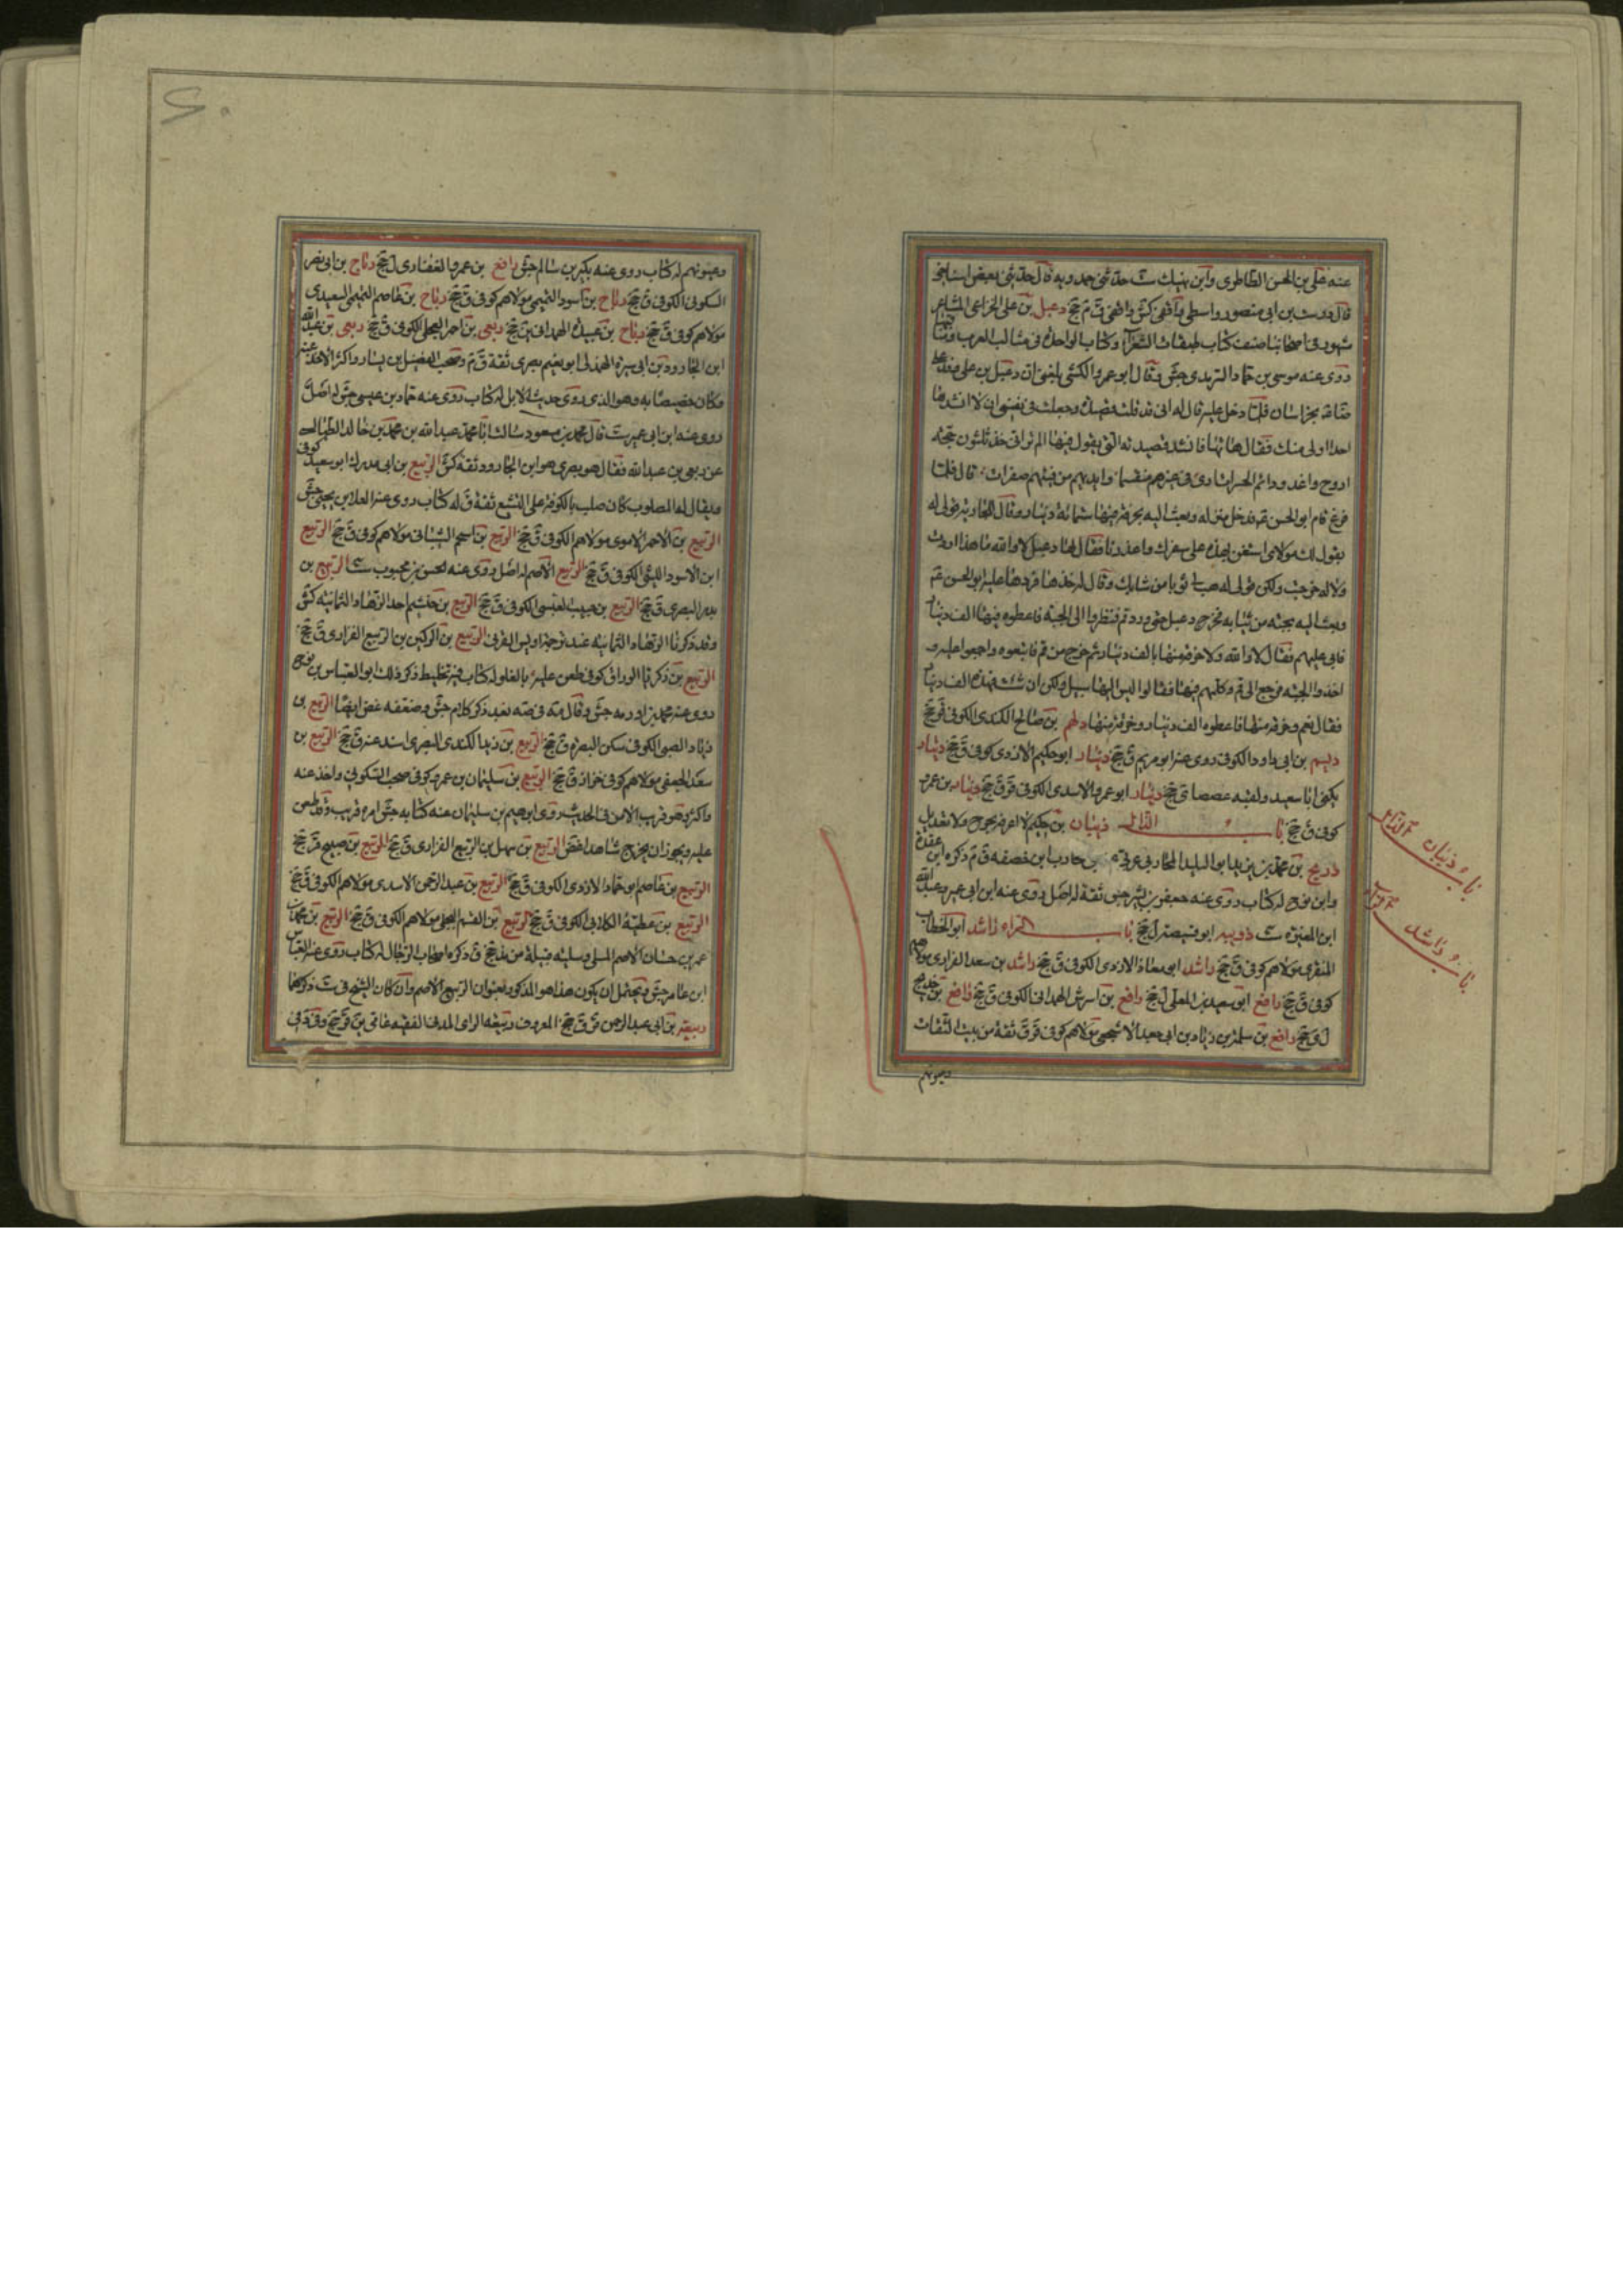 عنه علی بن الحسن الطاطری وابن نهیك ست حدثنی حمدویه قال حدثنی بعض اشیاخی
قال درست بن ابی منصور واسطی واقفی کش واقفی ق م جخ دعبل بن علی الخزاعی الشاعر
مشهور فی اصحابنا صنف کتاب طبقات الشعرآء وکتاب الواحدة فی مثالب العرب ومناقبها
روی عنه موسی بن حماد التریدی جش وقال ابو عمرو الکشی بلغنی ان دعبل بن علی وفد علی
بخراسان فلما دخل علیه قال له انی قد قلت قصیدة وجعلت فی نفسی ان لا انشدها
احدا اولی منك فقال هاتها فانشد قصیدته التی یقول فیها الم ترانی مذ ثلثون حجة
اروح واغدو دائم الحسرات اری فیئهم فی غیرهم متقسما وایدیهم من فیئهم صفرات قال فلما
فرغ قام ابو الحسن فدخل منزله وبعث الیه بخرقة فیها ستمائة دینار وقال للجاریة قولی له
یقول لك مولای استعن بهذه علی سفرك واعذرنا فقال لها دعبل لا والله ما هذا اردت
ولا له خرجت ولکن قولی له هب لی ثوبا من ثیابك وقال له خذها فردها علیه ابو الحسن
وبعث الیه بجبة من ثیابه فخرج دعبل حتی ورد قم فنظروا الی الجبة فاعطوه فیها الف دینار
فابی علیهم وقال لا والله ولا خرقة منها بالف دینار ثم خرج من قم فاتبعوه واجمعوا علیه و
اخذوا الجبة فرجع الی قم وکلمهم فیها فقالوا لیس الیها سبیل ولکن ان شئت فهذه الف دینار
فقال نعم وخرقة منها فاعطوه الف دینار وخرقة منها دلهم بن صالح الکندی الکوفی ق جخ
دلیم بن ابی داود الکوفی روی عنه ابو مریم ق جخ دینار ابو حکیم الازدی کوفی ق جخ دینار
یکنی ابا سعید ولقبه عصصا ی جخ دینار ابو عمرو الاسدی الکوفی قر ق جخ دینار بن عمرو
کوفی ق جخ باب الذال ذبیان بن حکیم لا اعرفه بجرح ولا تعدیل
ذریح بن محمد بن یزید ابو الولید المحاربی عربی من بنی محارب ابن خصفة ق م ذکره ابن عقدة
وابن نوح له کتاب روی عنه جعفر بن بشیر جش ثقة له اصل روی عنه ابن ابی عمیر وعبد الله
ابن المغیرة ست ذویب ابو قبیصة ل جخ باب الراء راشد ابو الخطاب
المنقری مولاهم کوفی ق جخ راشد ابو معاذ الازدی الکوفی ق جخ راشد بن سعد الفزاری مولاهم
کوفی ق جخ رافع ابو سعید بن المعلی ل جخ رافع بن اشرس الهمدانی الکوفی ق جخ رافع بن خدیج
ل ی جخ رافع بن سلمة بن زیاد بن ابی جعد الاشجعی مولاهم کوفی قر ق ثقة من بیت الثقات
وعیونهم
باب ذبیان
باب راشد
وعیونهم له کتاب روی عنه بکر بن سالم جش رافع بن عمرو الغفاری ل جخ رباح بن ابی نصر
السکونی الکوفی ق جخ رباح بن اسود التیمی مولاهم کوفی ق جخ رباح بن عاصم التیمی السعیدی
مولاهم کوفی ق جخ رباح بن عبیدة الهمدانی ین جخ ربعی بن احمر العجلی الکوفی ق جخ ربعی بن عبد الله
ابن الجارود بن ابی سبرة الهذلی ابو نعیم بصری ثقة ق م وصحب الفضیل بن یسار واکثر الاخذ عنه
وکان خصیصا به وهو الذی روی حدیث الابل له کتاب روی عنه حماد بن عیسی جش له اصل
روی عنه ابن ابی عمیر ست قال محمد بن مسعود سالت ابا محمد عبد الله بن محمد بن خالد الطیالسی
عن ربعی بن عبد الله فقال هو بصری هو ابن الجارود ثقة کش الربیع بن ابی مدرك ابو سعید کوفی
ویقال له المصلوب کان صلب بالکوفة علی التشیع ثقة ق له کتاب روی عنه العلا بن یحیی جش
الربیع بن الاحمر الاموی مولاهم الکوفی ق جخ الربیع بن اسحم الشیبانی مولاهم کوفی ق جخ الربیع
ابن الاسود اللیثی الکوفی ق جخ الربیع الاصم له اصل روی عنه الحسن بن محبوب ست الربیع بن
بدر البصری ق جخ الربیع بن حبیب العبسی الکوفی ق جخ الربیع بن خثیم احد الزهاد الثمانیة کش
وقد ذکرنا الزهاد الثمانیة عند ترجمة اویس القرنی الربیع بن الرکین بن الربیع الفزاری ق جخ
الربیع بن زکریا الوراق کوفی طعن علیه بالغلو له کتاب فیه تخلیط ذکر ذلك ابو العباس بن نوح
روی عنه محمد بن اورمه جش وقال مة فی صه بعد ذکر کلام جش وضعفه غض ایضا الربیع بن
زیاد الضبی الکوفی سکن البصرة ق جخ الربیع بن زید الکندی البصری اسند عنه ق جخ الربیع بن
سعد الجعفی مولاهم کوفی خزاز ق جخ الربیع بن سلیمان بن عمرو کوفی صحب السکونی واخذ عنه
واکثر وهو قریب الامر فی الحدیث روی ابرهیم بن سلیمان عنه کتابه جش امره قریب وقد طعن
علیه ویجوز ان یخرج شاهدا غض الربیع بن سهل بن الربیع الفزاری ق جخ الربیع بن صبیح قر جخ
الربیع بن عاصم ابو حماد الازدی الکوفی ق جخ الربیع بن عبد الرحمن الاسدی مولاهم الکوفی ق جخ
الربیع بن عطیة الکلابی الکوفی ق جخ الربیع بن القسم البجلی مولاهم الکوفی ق جخ الربیع بن محمد بن
عمر بن حسان الاصم المسلی ومسلیة قبیلة من مذحج ق ذکره اصحاب الرجال له کتاب روی عنه العباس
ابن عامر جش ویحتمل ان یکون هذا هو المذکور بعنوان الربیع الاصم وان کان الشیخ فی ست ذکرهما
ربیعة بن ابی عبد الرحمن قر ق جخ المعروف ربیعة الرای المدنی الفقیه عامی ین قر جخ